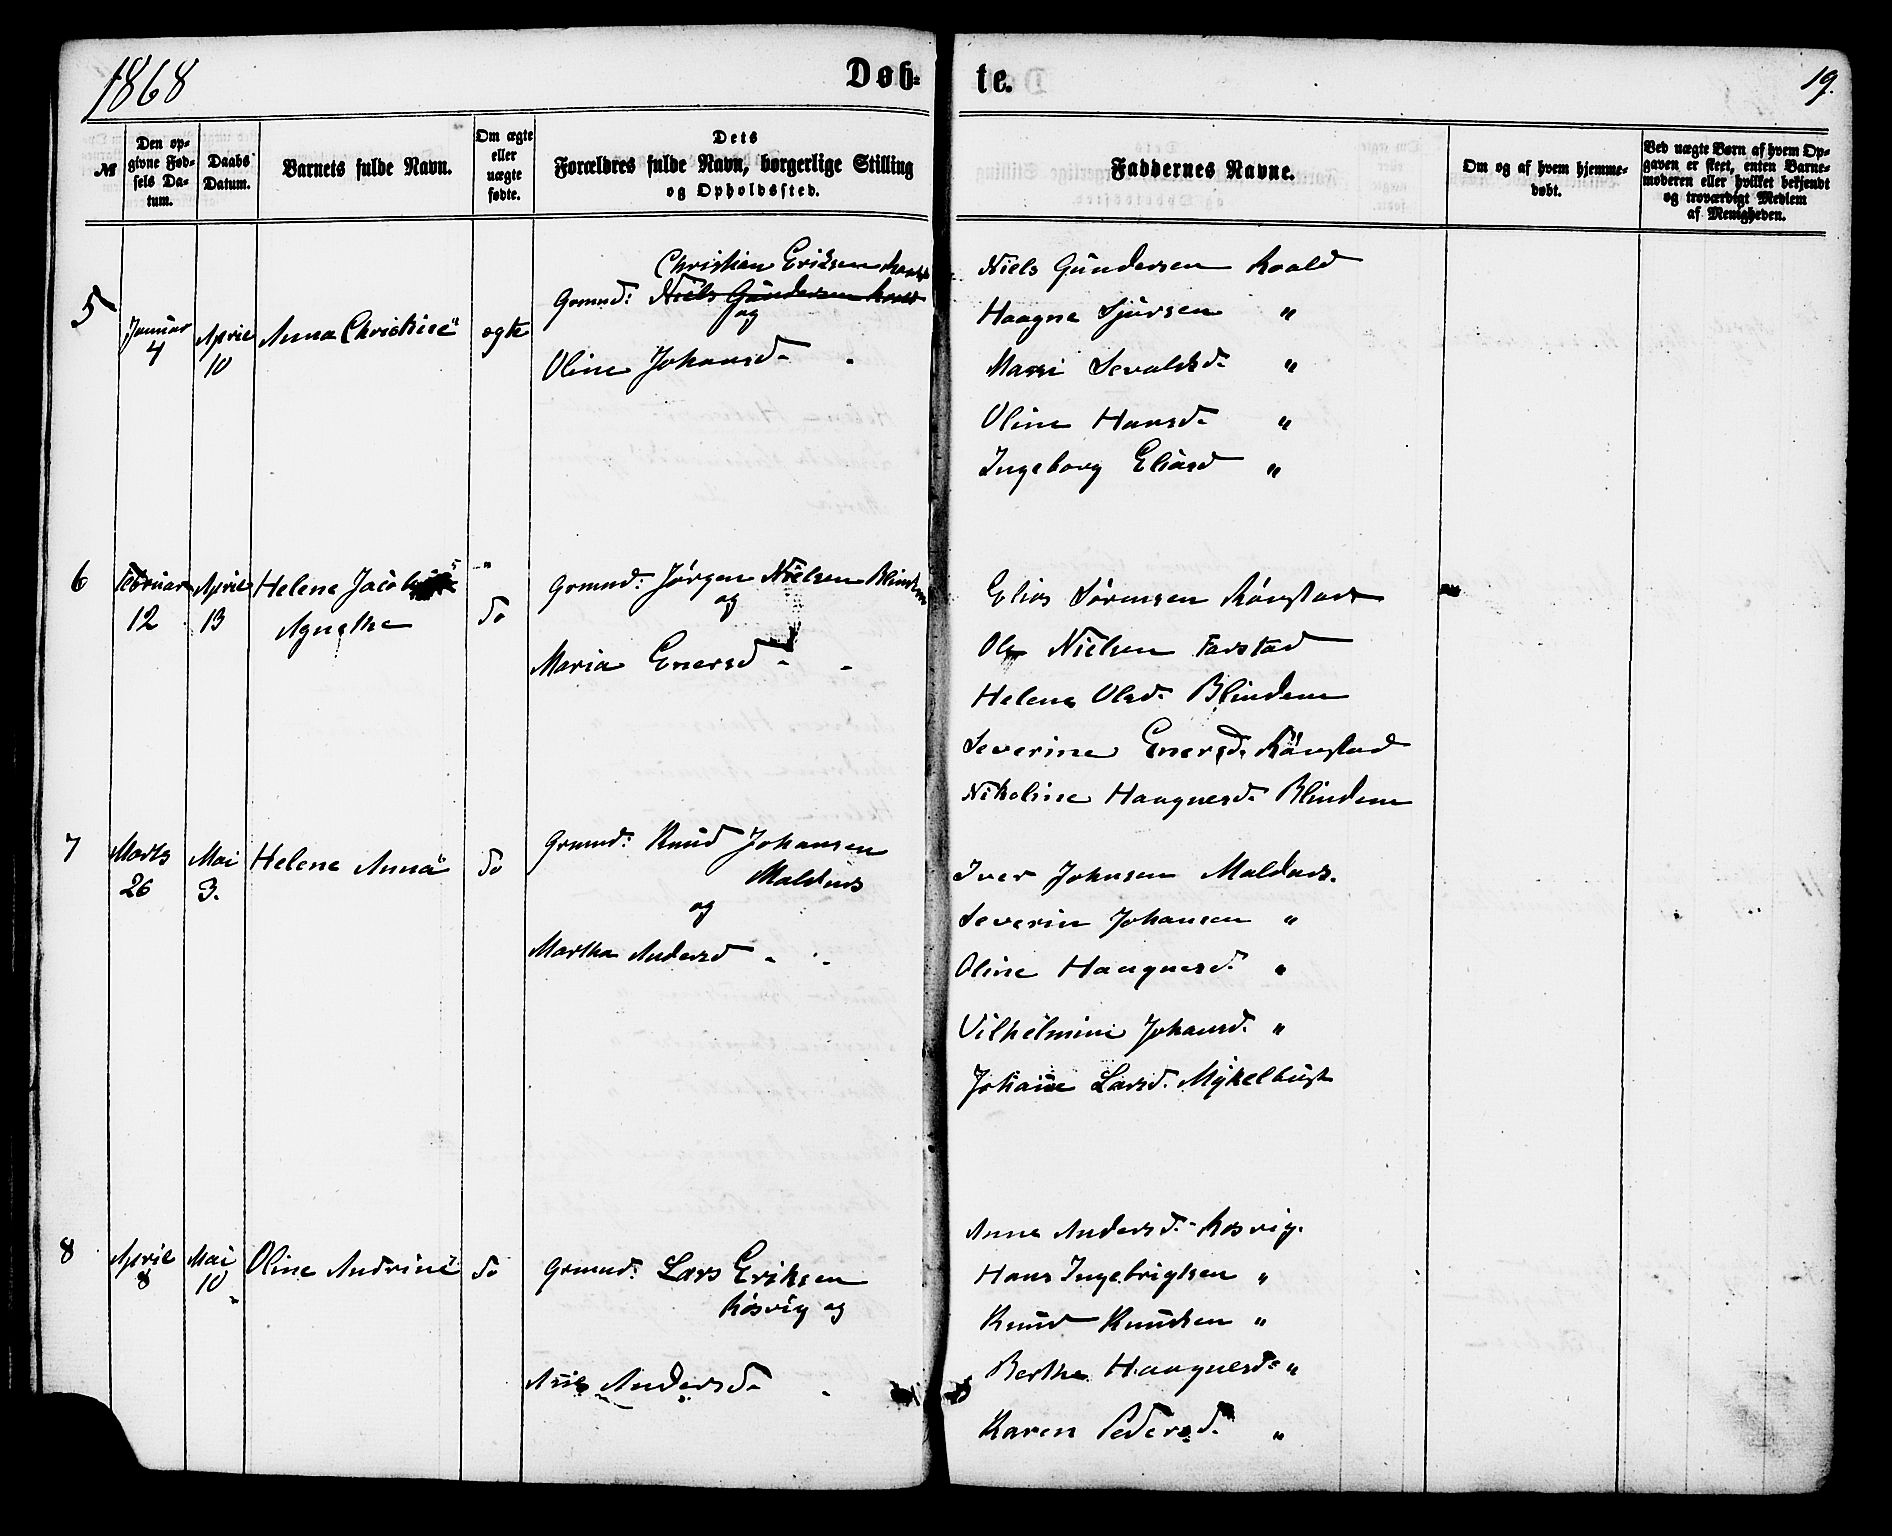 1868
Døb-
te.
19.
№
Den op-
givne Fød-
sels Da-
tum.
Daabs
Datum.
Barnets fulde Navn.
Om ægte
eller
uægte
fødte.
Dets
Forældres fulde Navn, borgerlige Stilling
og Opholdssted.
Faddernes Navne.
Om og af hvem hjemme-
døbt.
Ved uægte Børn af hvem Op-
gaven er skeet, enten Barne-
moderen eller hvilket bekjendt
og troværdigt Medlem
af Menigheden.
5
Januar
4
April
10
Anna Christine"
ægte
Christian Eriksen Roald
Grmnd: Niels Gundersen Roald
og
Oline Johansd. "
Niels Gundersen Roald
Haagne Sjursen "
Massi Sevaldsd. "
Oline Hansd. "
Ingeborg Eliasd "
6
Februar
12
April
13
Helene Jacob
Agnethe
"
do
Grmnd: Jørgen Nielsen Blindem
og
Maria Enersd - -
Elias Sørensen Rønstad
Ole Nielsen Farstad
Helene Olsd. Blindem
Severine Enersd. Rønstad
Nikoline Haagnesd. Blindem
7
Marts
26
Mai
3.
Helene Anna"
do
Grmnd: Knud Johansen
Maldnes
og
Martha Andersd - -
Iver Johnsen Maldnes.
Severin Johansen "
Oline Haagnesd. "
Vilhelmine Johansd. "
Johanne Larsd. Mykelbust
8
April
8
Mai
10
Oline Andrine"
do
Grmnd: Lars Eriksen
Røsvig og
Andersd. -
Anne Andersd. Røsvig.
Hans Ingebrigtsen "
Knud Knudsen "
Berthe Haagnesd. "
Karen Pedersd. "